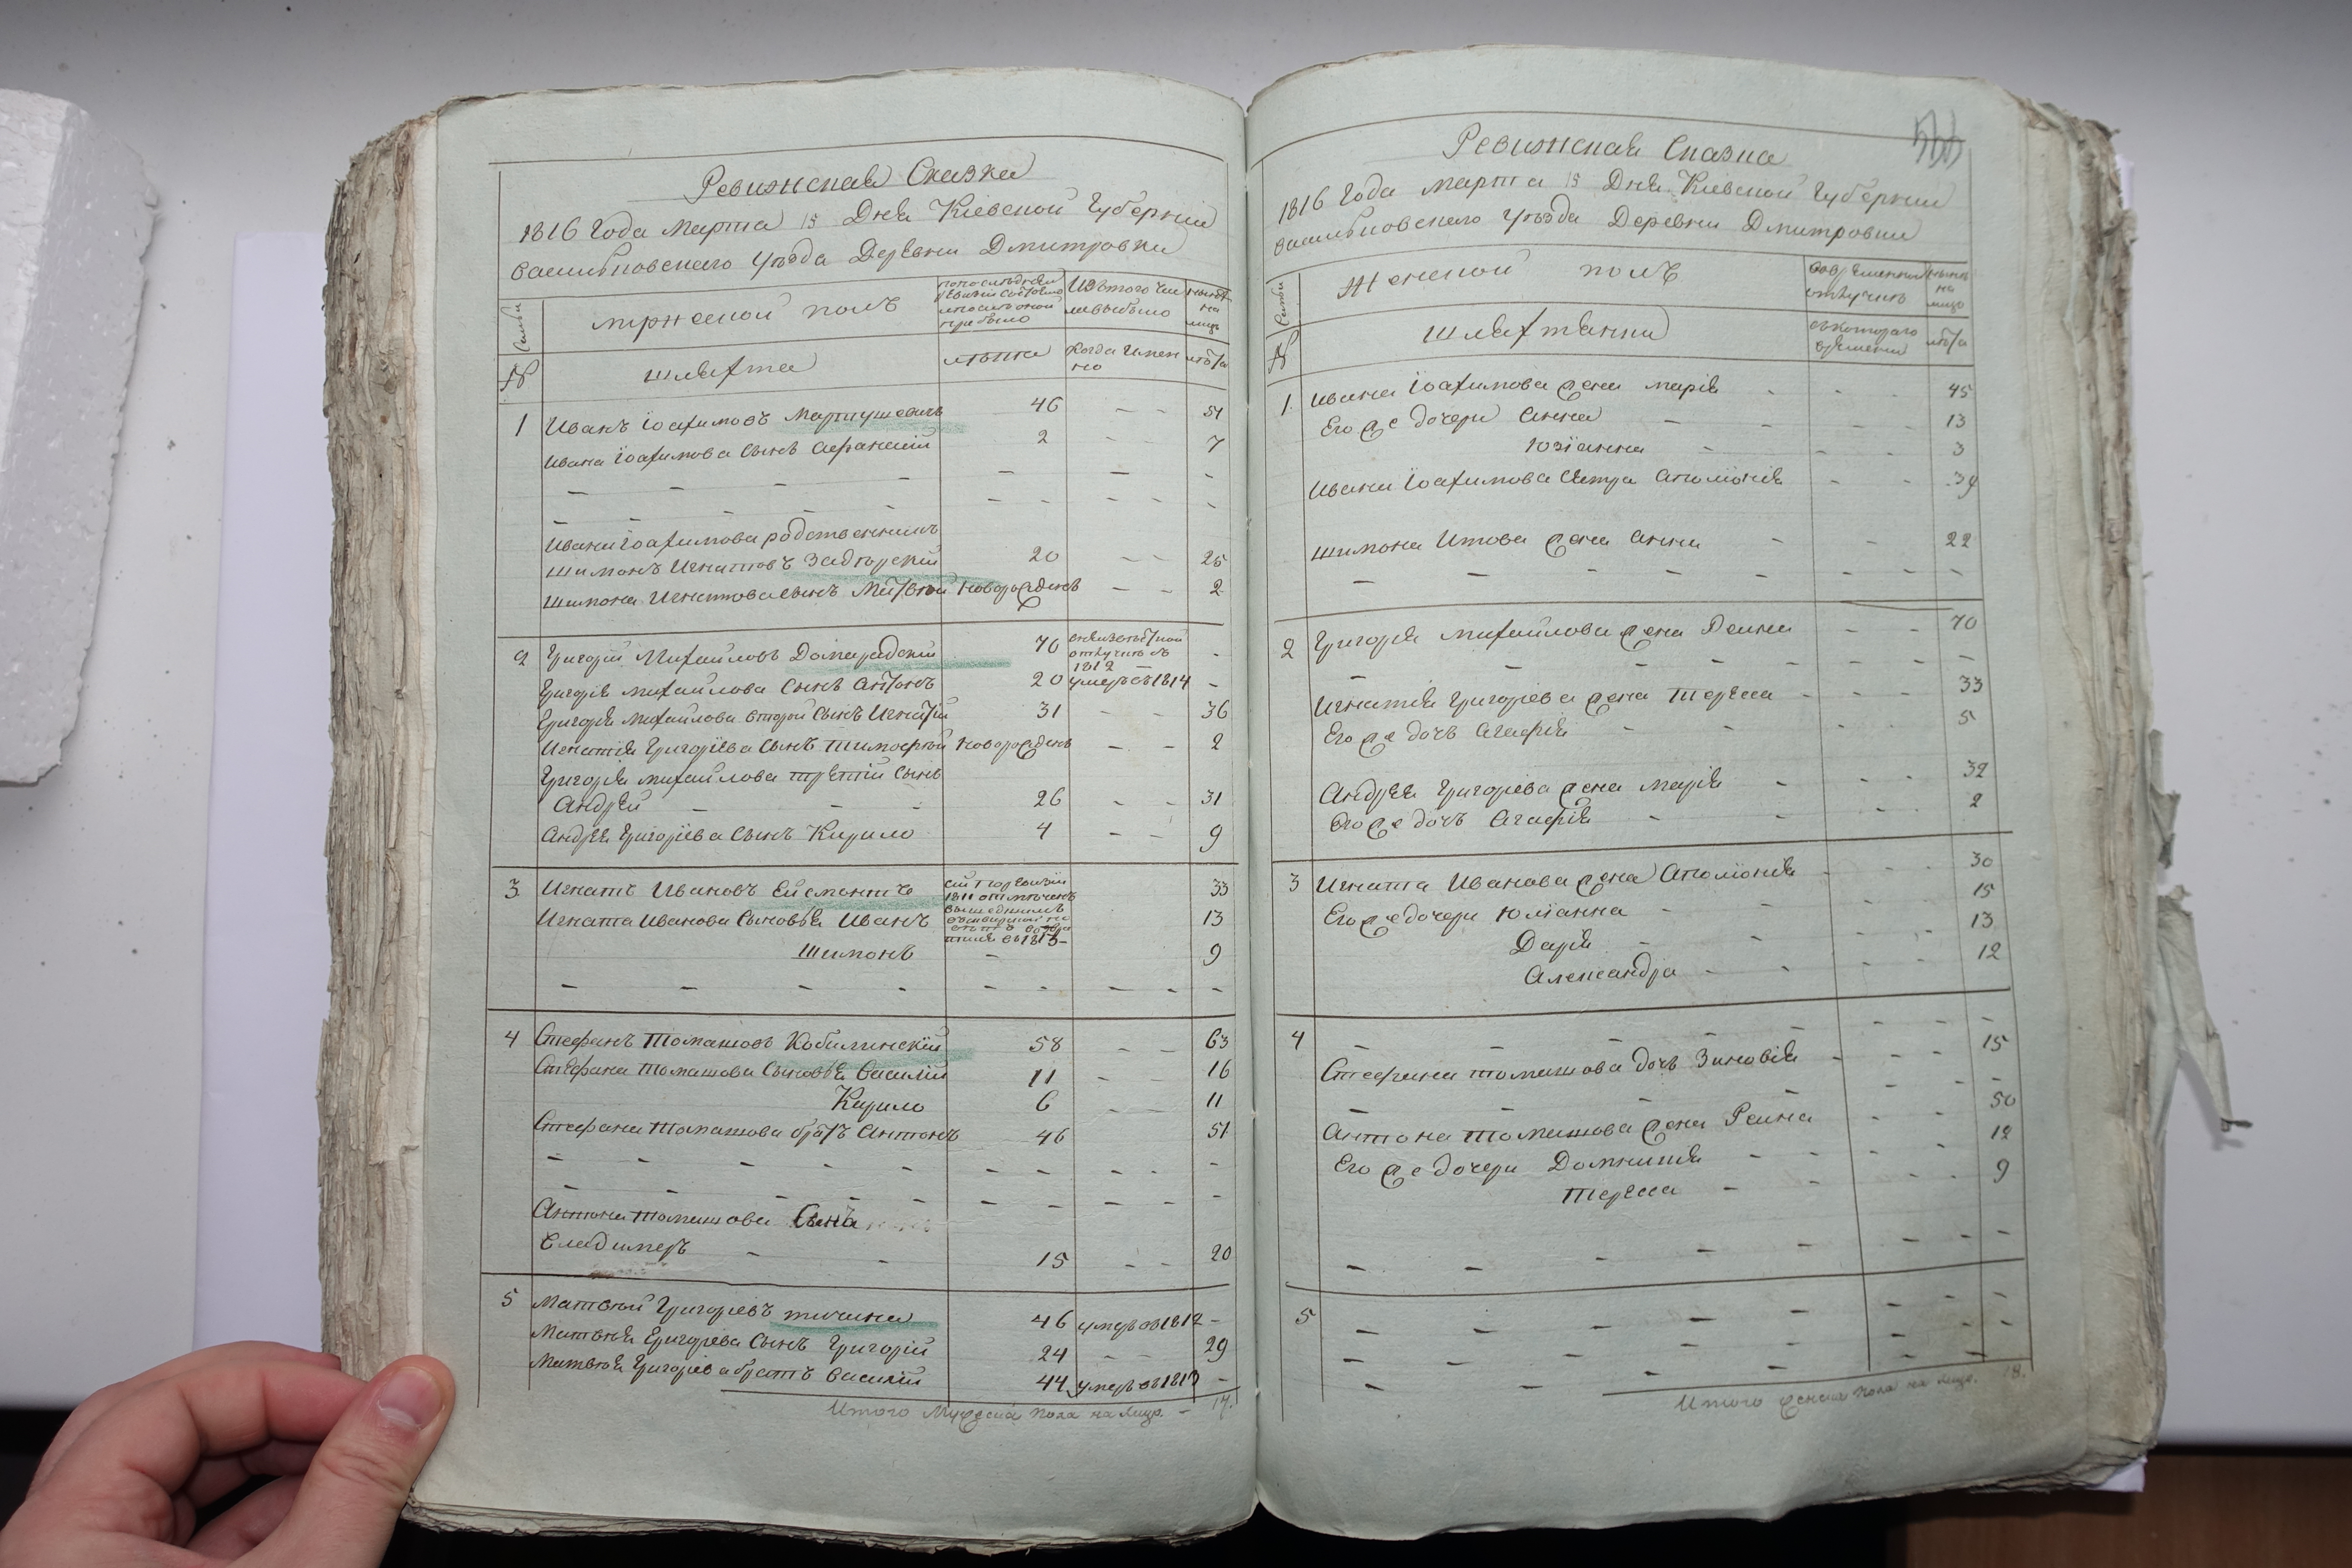 Ревижская Сказка
1816 Года Марта 15 Дня Кіевской Губерніи
васильковскаго уѣзда Деревни Дмитровки
Семьи
мужеской полъ
по последней ревизіи состояло и после оной прибыло
Изъ того числа выбыло
ныне на лицо
№
шляхта
лѣта
Когда имен но
лѣта
1 Иванъ Іоахимовъ Мартушевичъ 46 - - 51
Ивана Іоахимова сынъ Афанасій 2 - - 7
Ивана Іоахимова родственникъ
Шимонъ Игнатовъ Задгорскій 20 - - 25
Шимона Игнатова сынъ Матвѣй новорожденъ - - 2
2 Григорій Михайловъ Домарадскій 70 въ 1812 -
Григорія Михайлова сынъ Антонъ 20 умеръ въ 1814 -
Григорія Михайлова второй сынъ Игнатій 31 - - 36
Игнатія Григоріева сынъ Тимофтей новорожденъ - - 2
Григорія Михайлова третій сынъ
Андрей - - - 26 - - 31
Андрея Григоріева сынъ Кирило 4 - - 9
3 Игнатъ Ивановъ Ейсмонтъ 33
Игната Иванова сыновья Иванъ 13
Шимонъ - 9
4 Стефанъ Томашовъ Кобилинскій 58 - - 63
Стефана Томашова сыновья Василій 11 - - 16
Кирило 6 - - 11
Стефана Томашова братъ Антонъ 46 51
Антона Томашова сынъ
Владимеръ - - 15 - - 20
5 Матвѣй Григоріевъ тичина 46 умеръ въ 1812 -
Матвѣя Григоріева сынъ Григорій 24 - - 29
Матвѣя Григоріева братъ Василій 44 умеръ въ 1813 -
Итого Мужеска пола на лицо. - 17.
Ревижская Сказка
1816 Года Марта 15 Дня Кіевской Губерніи
васильковскаго уѣзда Деревни Дмитровки
Семьи
Женской полъ
Во временной отлучкѣ
ныне на лицо
№
шляхтянки
съ котораго времени
лѣта
1 Ивана Іоахимова жена Марія - - - 45
Его же дочери Анна - - - 13
Юзіанна - - - 3
Ивана Іоахимова сестра Аполіонія - - 39
Шимона Игнатова жена Анна - - - 22
2 Григорія Михайлова жена Реина - - 70
Игнатія Григоріева жена Тереса - - - 33
Его же дочь Агафія - - - 5
Андрея Григоріева жена Марія - - - 32
Его же дочъ Агафія - - - 2
3 Игната Иванова жена Аполіонія - - - 30
Его же дочери Юліанна - - - 15
Дарія - - - 13
Александра - - - 12
4
Стефана Томашова дочъ Зиновія - - - 15
Антона Томашова жена Реина - - 50
Его же дочери Домникія - - - 12
Тереса - - - 9
5
Итого женска пола на лицо. 18.